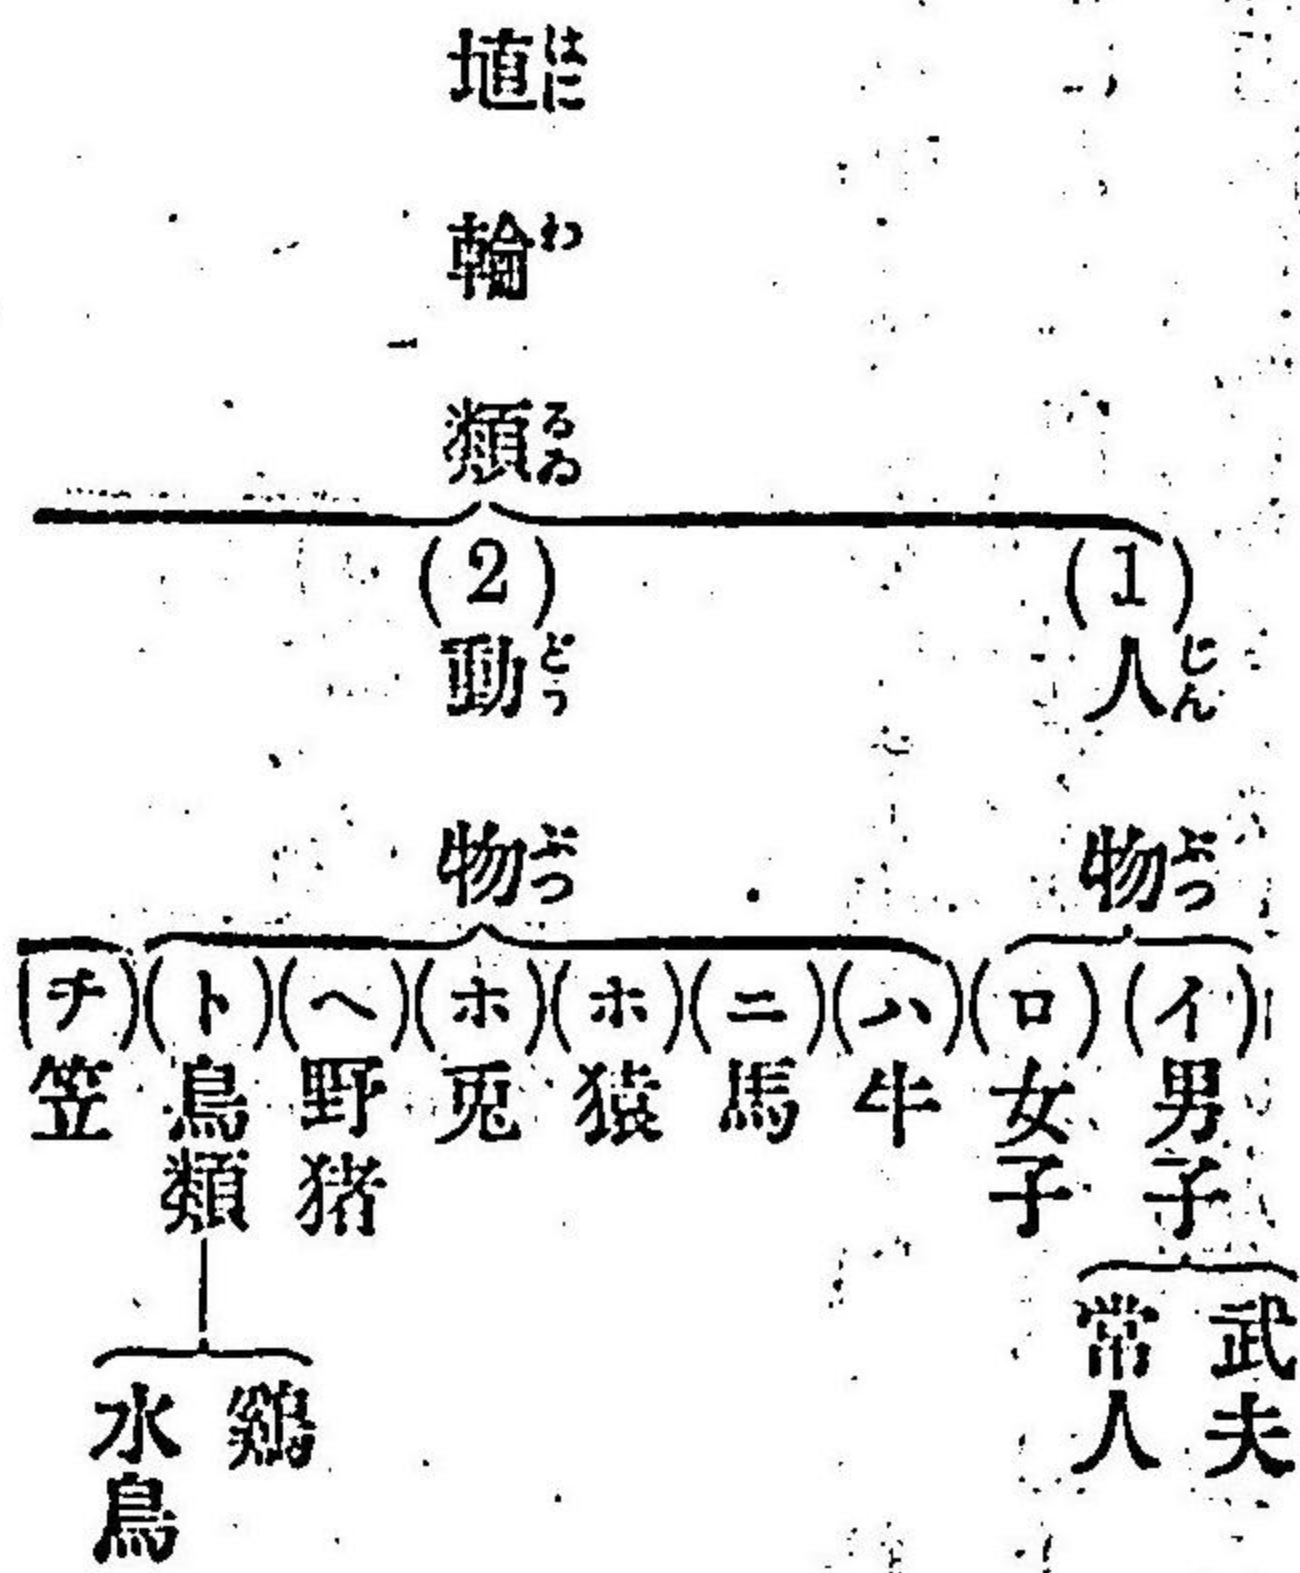 埴輪類
はにわるゐ
(1)人物
じんぶつ
(イ)男子
武夫
常人
(ロ)女子
(2)動物
どうぶつ
(ハ)牛
(ニ)馬
(ホ)猿
(ホ)兎
(ヘ)野猪
(ト)鳥類
鷄
水鳥
(チ)笠